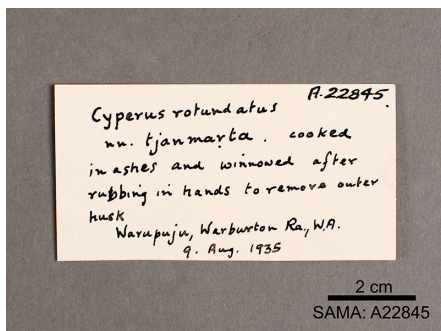 A.22845.
Cyperus rotundatus
nn. tjanmaṟta. cooked
in ashes and winnowed after
rubbing in hands to remove outer
husk
Warupuju, Warburton Ra., W.A.
9. Aug. 1935
2 cm
SAMA: A22845